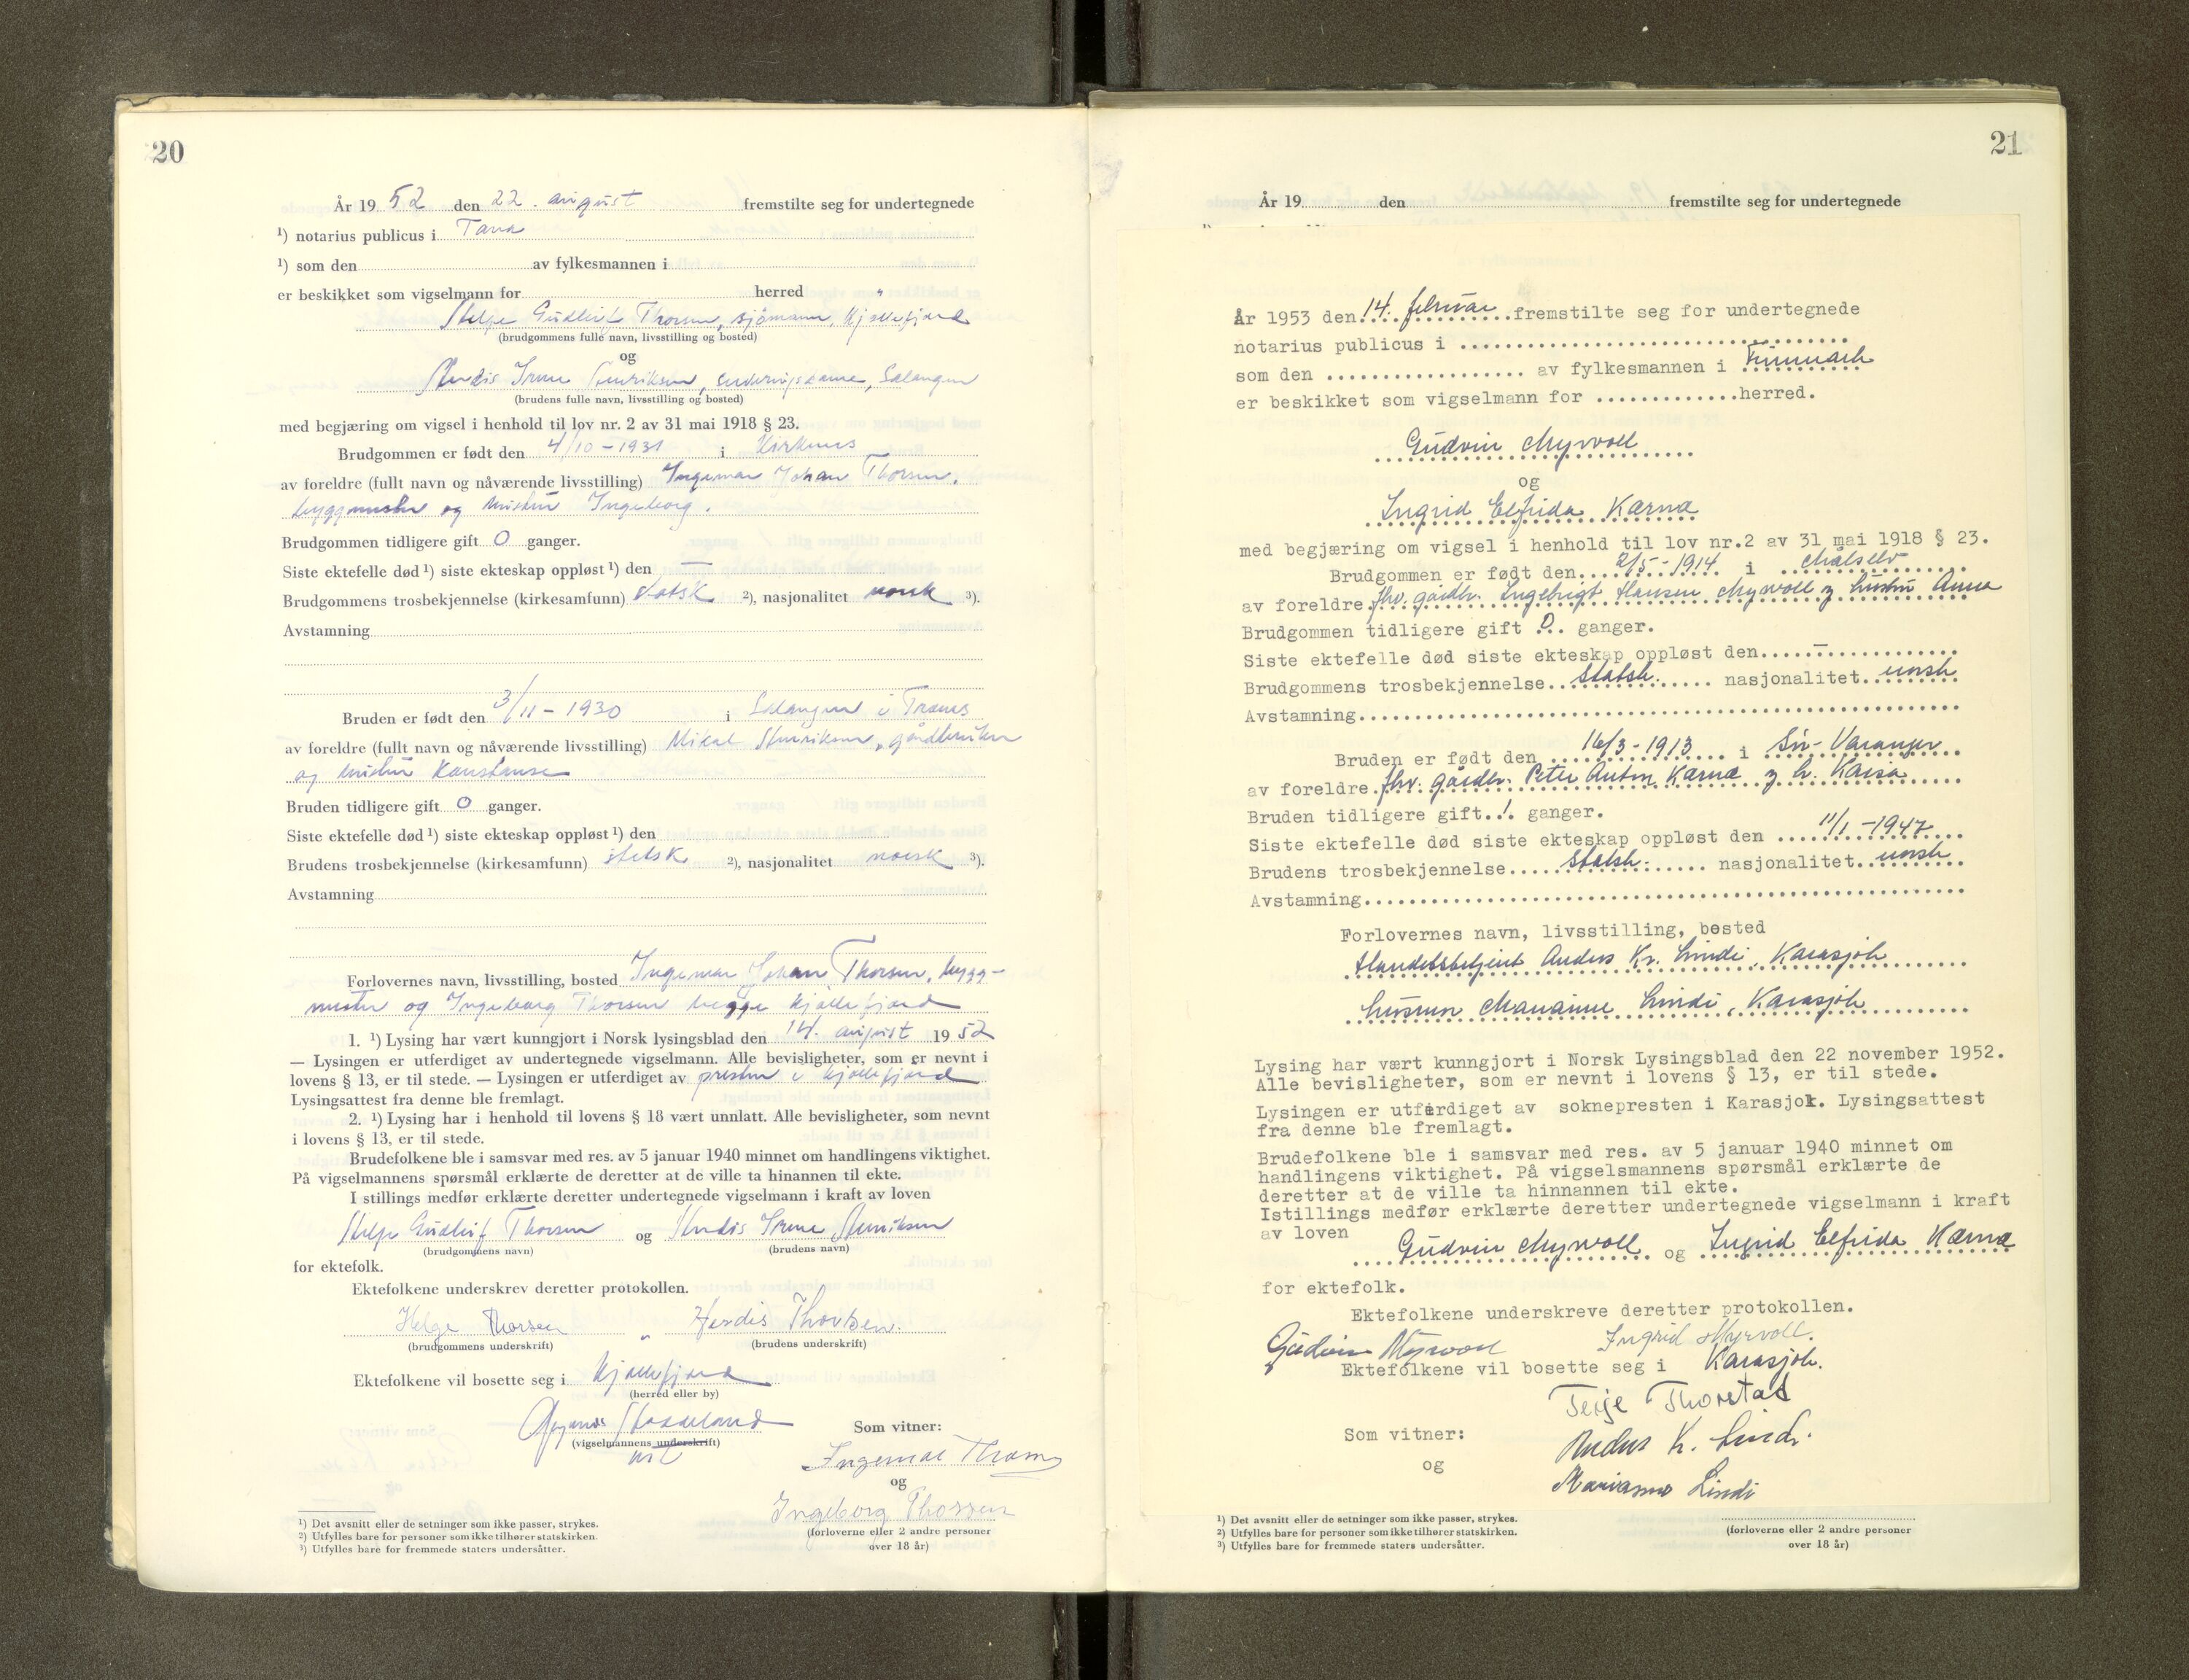 20
År 19 52 den 22. august fremstilte seg for undertegnede
¹) notarius publicus i Tana
¹) som den av fylkesmannen i
er beskikket som vigselmann for herred
Helge Gudleif Thorsen, sjömann, Kjøllefjord
(brudgommens fulle navn, livsstilling og bosted)
og
Herdis Irene Henriksen, serveringsdame, Salangen
(brudens fulle navn, livsstilling og bosted)
med begjæring om vigsel i henhold til lov nr. 2 av 31 mai 1918 § 23.
Brudgommen er født den 4/10 - 1931 i Kirkenes
av foreldre (fullt navn og nåværende livsstilling) Ingemar Johan Thorsen,
byggmester og hustru Ingeborg.
Brudgommen tidligere gift 0 ganger.
Siste ektefelle død ¹) siste ekteskap oppløst ¹) den —
Brudgommens trosbekjennelse (kirkesamfunn) statsk ²), nasjonalitet norsk ³).
Avstamning
Bruden er født den 3/11 - 1930 i Salangen i Troms
av foreldre (fullt navn og nåværende livsstilling) Mikal Henriksen, gårdbruker
og hustru Konstanse
Bruden tidligere gift 0 ganger.
Siste ektefelle død ¹) siste ekteskap oppløst ¹) den
Brudens trosbekjennelse (kirkesamfunn) statsk ²), nasjonalitet norsk ³).
Avstamning
Forlovernes navn, livsstilling, bosted Ingemar Johan Thorsen, bygg-
mester og Ingeborg Thorsen begge Kjøllefjord
1. ¹) Lysing har vært kunngjort i Norsk lysingsblad den 14. august 19 52
— Lysingen er utferdiget av undertegnede vigselmann. Alle bevisligheter, som er nevnt i
lovens § 13, er til stede. — Lysingen er utferdiget av presten i Kjøllefjord
Lysingsattest fra denne ble fremlagt.
2. ¹) Lysing har i henhold til lovens § 18 vært unnlatt. Alle bevisligheter, som nevnt
i lovens § 13, er til stede.
Brudefolkene ble i samsvar med res. av 5 januar 1940 minnet om handlingens viktighet.
På vigselmannens spørsmål erklærte de deretter at de ville ta hinannen til ekte.
I stillings medfør erklærte deretter undertegnede vigselmann i kraft av loven
Helge Gudleif Thorsen og Herdis Irene Henriksen
(brudgommens navn) (brudens navn)
for ektefolk.
Ektefolkene underskrev deretter protokollen.
Helge Thorsen Herdis Thorsen.
(brudgommens underskrift) (brudens underskrift)
Ektefolkene vil bosette seg i Kjøllefjord
(herred eller by)
(vigselmannens underskrift)
Som vitner:
Ingemar Thorsen
og
Ingeborg Thorsen
(forloverne eller 2 andre personer
over 18 år)
¹) Det avsnitt eller de setninger som ikke passer, strykes.
²) Utfylles bare for personer som ikke tilhører statskirken.
³) Utfylles bare for fremmede staters undersåtter.
21
År 19 den fremstilte seg for undertegnede
År 1953 den 14. februar fremstilte seg for undertegnede
notarius publicus i
som den av fylkesmannen i Finnmark
er beskikket som vigselmann for herred.
Gudvin Myrvoll
og
Ingrid Elfrida Karna
med begjæring om vigsel i henhold til lov nr.2 av 31 mai 1918 § 23.
Brudgommen er født den 2/5 - 1914 i Målselv
av foreldre fhv. gårdbr. Ingebrigt Hansen Myrvoll og hustru Anna
Brudgommen tidligere gift 0 ganger.
Siste ektefelle død siste ekteskap oppløst den —
Brudgommens trosbekjennelse statsk. nasjonalitet norsk
Avstamning
Bruden er født den 16/3 - 1913 i Sør-Varanger
av foreldre fhv. gårdbr. Peter Anton Karna og h. Kaisa
Bruden tidligere gift 1 ganger.
Siste ektefelle død siste ekteskap oppløst den 11/1 - 1947
Brudens trosbekjennelse statsk. nasjonalitet norsk
Avstamning
Forlovernes navn, livsstilling, bosted
Handelsbetjent Anders Kr. Lindi, Karasjok
husmor Marianne Lindi, Karasjok
Lysing har vært kunngjort i Norsk Lysingsblad den 22 november 1952.
Alle bevisligheter, som er nevnt i lovens § 13, er til stede.
Lysingen er utferdiget av soknepresten i Karasjok. Lysingsattest
fra denne ble fremlagt.
Brudefolkene ble i samsvar med res. av 5 januar 1940 minnet om
handlingens viktighet. På vigselsmannens spørsmål erklærte de
deretter at de ville ta hinnannen til ekte.
Istillings medfør erklærte deretter undertegnede vigselmann i kraft
av loven
Gudvin Myrvoll og Ingrid Elfrida Karna
for ektefolk.
Ektefolkene underskreve deretter protokollen.
Gudvin Myrvoll Ingrid Myrvoll.
Ektefolkene vil bosette seg i Karasjok.
Terje Thorstad
Som vitner: Anders K. Lindi.
og
Marianne Lindi
¹) Det avsnitt eller de setninger som ikke passer, strykes.
²) Utfylles bare for personer som ikke tilhører statskirken.
³) Utfylles bare for fremmede staters undersåtter.
(forloverne eller 2 andre personer
over 18 år)